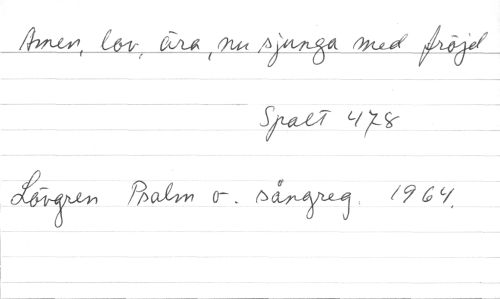 Amen, lov, ära, nu sjunga med fröjd
Spalt 478
Lövgren Psalm o. sångreg. 1964.